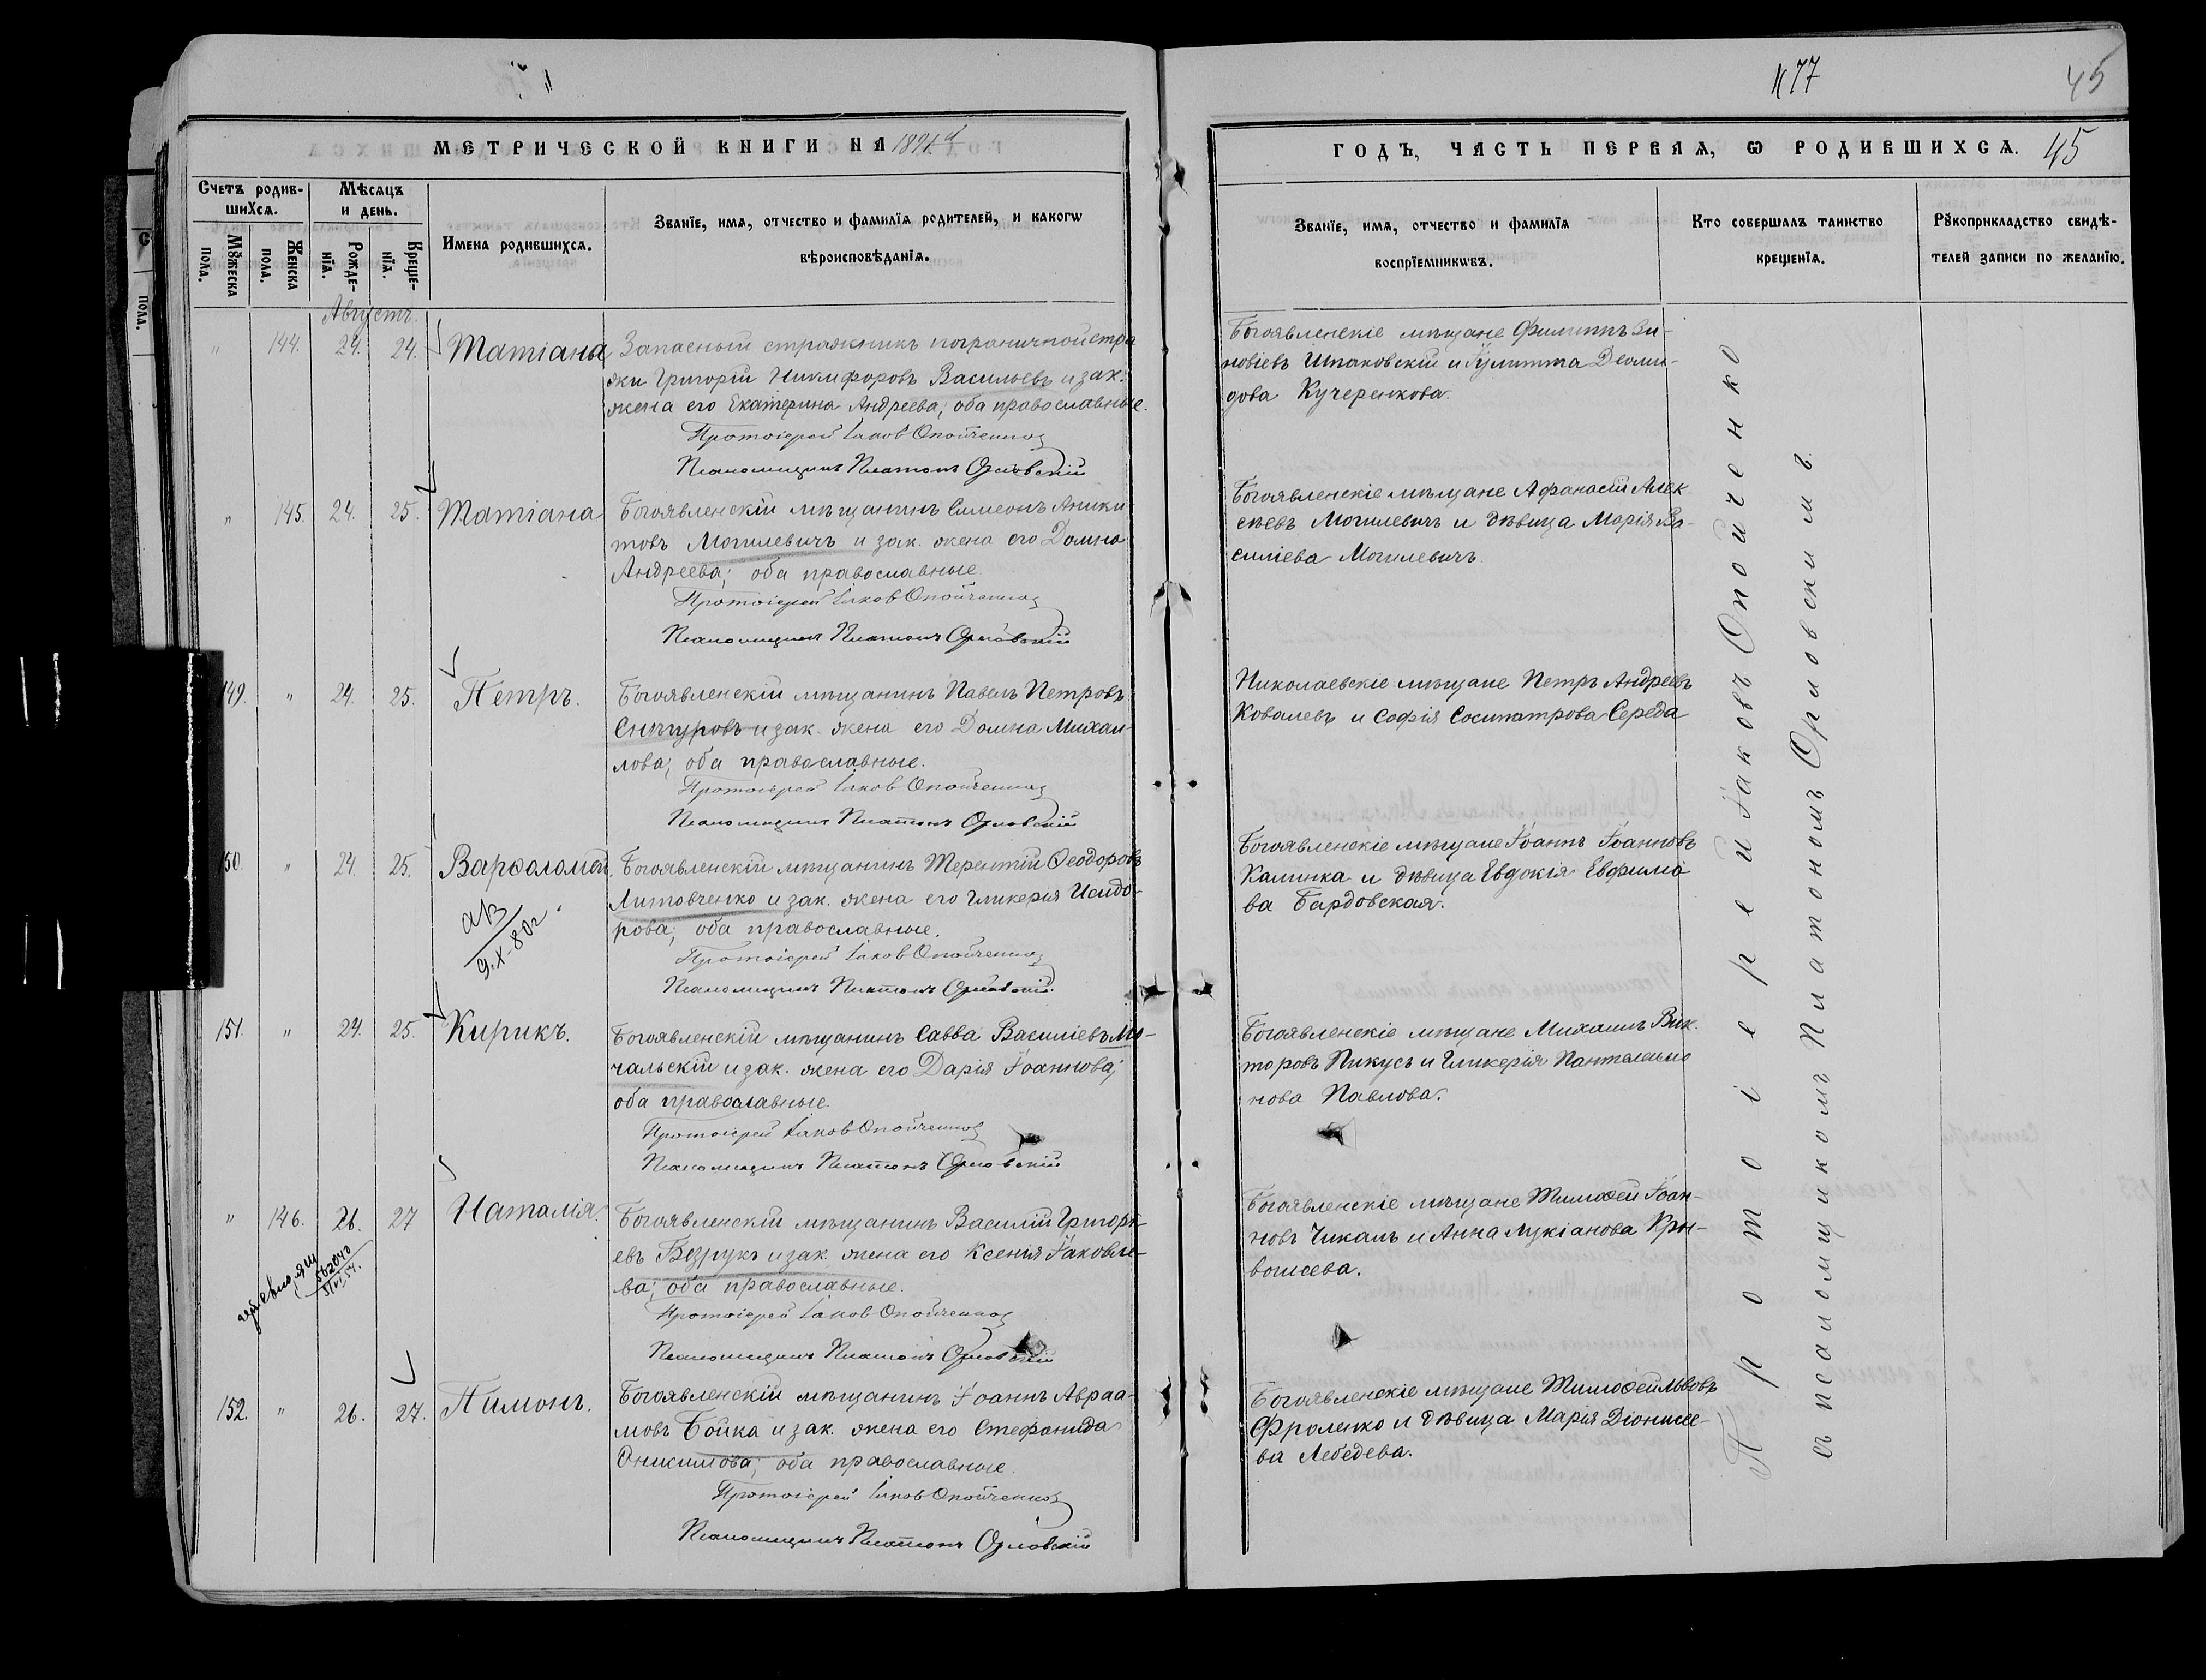 177
45
МЕТРИЧЕСКОЙ КНИГИ НА 1891 й
ГОДЪ, ЧАСТЬ ПЕРВАЯ, Ѡ РОДИВШИХСѦ. 45
Счетъ родив-
шихсѧ.
Мѣсѧцъ
и день.
Мꙋжеска
пола.
Женска
пола.
Рожде-
нїѧ.
Креще-
нїѧ.
Имена родившихсѧ.
Званїе, имѧ, отчество и фамилїѧ родителей, и какогѡ
вѣроисповѣданїѧ.
Званїе, имѧ, отчество и фамилїѧ
воспрїемникѡвъ.
Кто совершалъ таинство
крещенїѧ.
Рꙋкоприкладство свидѣ-
телей записи по желанїю.
Августъ.
" 144. 24. 24. Татіана
Запасный стражникъ пограничной стра
жи Григорій Никифоровъ Васильевъ и зак.
жена его Екатерина Андреева; оба православные.
Протоіерей Іаков Опойченко
Псаломщикъ Платонъ Орловскій
Богоявленскіе мѣщане Филиппъ Зи-
новіевъ Шпаковскій и Іулитта Деоми-
дова Кучеренкова.
" 145. 24. 25. Татіана
Богоявленскій мѣщанинъ Симеонъ Аники-
товъ Могилевичъ и зак. жена его Домна
Андреева; оба православные.
Протоіерей Іаков Опойченко
Псаломщикъ Платонъ Орловскій
Богоявленскіе мѣщане Афанасій Алек
сѣевъ Могилевичъ и дѣвица Марія Ва-
силіева Могилевичъ
149. " 24. 25. Петръ.
Богоявленскій мѣщанинъ Павелъ Петровъ
Снѣгуровъ и зак. жена его Домна Михаи-
лова; оба православные.
Протоіерей Іаков Опойченко
Псаломщикъ Платонъ Орловскій
Николаевскіе мѣщане Петръ Андреевъ
Ковалевъ и Софія Сосипатрова Середа
150. " 24. 25. Варѳоломей.
Богоявленскій мѣщанинъ Терентій Ѳеодоровъ
Литовченко и зак. жена его Гликерія Исидо-
рова; оба православные.
Протоіерей Іаков Опойченко
Псаломщикъ Платонъ Орловскій
Богоявленскіе мѣщане Іоаннъ Іоанновъ
Калинка и дѣвица Евдокія Евфиміо
ва Бардовская.
ав
9.X-80г
151. " 24. 25. Кирикъ.
Богоявленскій мѣщанинъ Савва Василіевъ Мо-
чальскій и зак. жена его Дарія Іоаннова;
оба православные.
Протоіерей Іаков Опойченко
Псаломщикъ Платонъ Орловскій
Богоявленскіе мѣщане Михаилъ Вик-
торовъ Пикусъ и Гликерія Пантелеимо
нова Павлова.
" 146. 26. 27 Наталія.
Богоявленскій мѣщанинъ Василій Григорь-
евъ Безрукъ и зак. жена его Ксенія Іаковле-
ва; оба православные.
Протоіерей Іаков Опойченко
Псаломщикъ Платонъ Орловскій
Богоявленскіе мѣщане Тимоѳей Іоан-
новъ Чикалъ и Анна Лукіанова Кри-
вошеева.
152. " 26. 27. Пимонъ.
Богоявленскій мѣщанинъ Іоаннъ Авраа-
мовъ Бойка и зак. жена его Стефанида
Онисимова; оба православные.
Протоіерей Іаков Опойченко
Псаломщикъ Платонъ Орловскій
Богоявленскіе мѣщане Тимоѳей Львовъ
Фроленко и дѣвица Марія Діонисіе-
ва Лебедева.
Протоіерей Іаковъ Опойченко
съ псаломщикомъ Платономъ Орловскимъ.